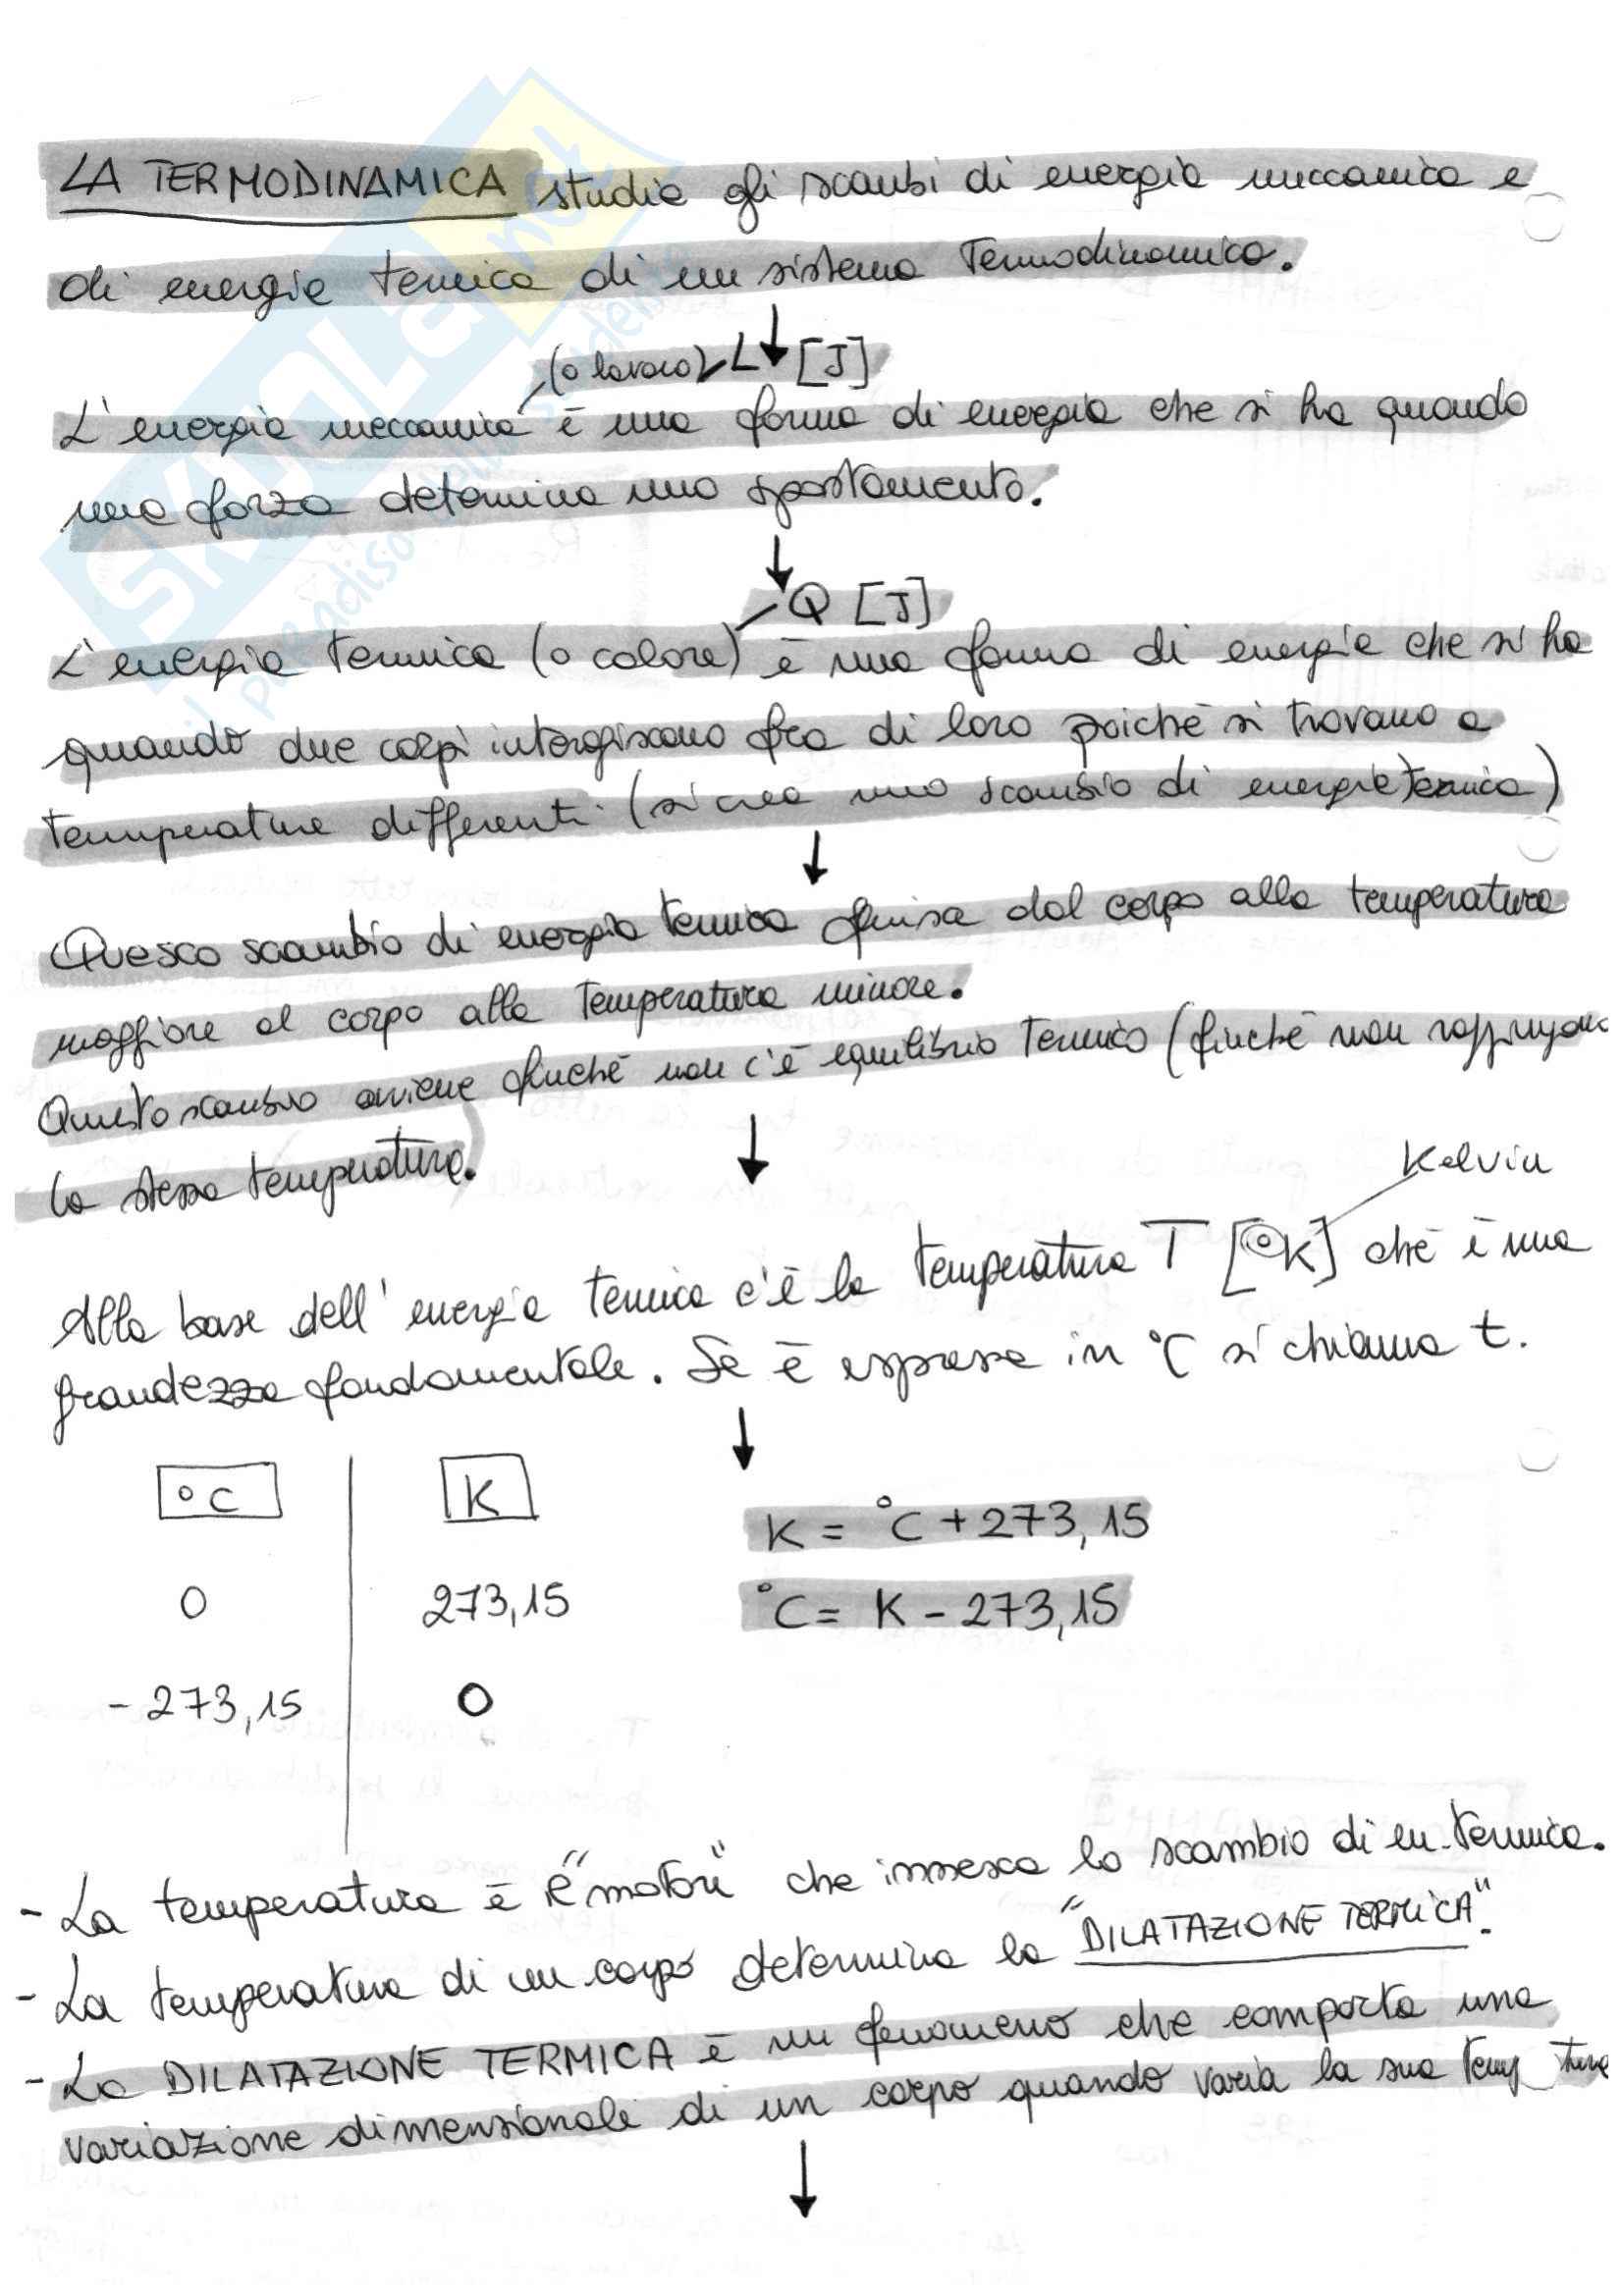 LA TERMODINAMICA studia gli scambi di energia meccanica e
di energia termica di un sistema Termodinamico.
(o lavoro) L [J]
L'energia meccanica è una forma di energia che si ha quando
una forza determina uno spostamento.
Q [J]
L'energia termica (o calore) è una forma di energia che si ha
quando due corpi interagiscono fra di loro poichè si trovano a
temperature differenti. (si crea uno scambio di energia termica)
Quesco scambio di energia termica fluisa dal corpo alla temperatura
maggiore al corpo alla temperatura minore.
Questo scambio avviene finchè non c'è equilibrio termico (finchè non raggiungono
la stessa temperatura.)
Kelvin
Alla base dell'energia termica c'è la temperatura T [°K] che è una
grandezza fondamentale. Se è espressa in °C si chiama t.
°C K
K = °C + 273,15
0 273,15
°C = K - 273,15
- 273,15 0
- La temperatura è il "motore" che innesca lo scambio di en. termica.
- La temperatura di un corpo determina la "DILATAZIONE TERMICA".
- La DILATAZIONE TERMICA è un fenomeno che comporta una
variazione dimensionale di un corpo quando varia la sua temp tura
SKUOLA.net
il paradiso dello studente